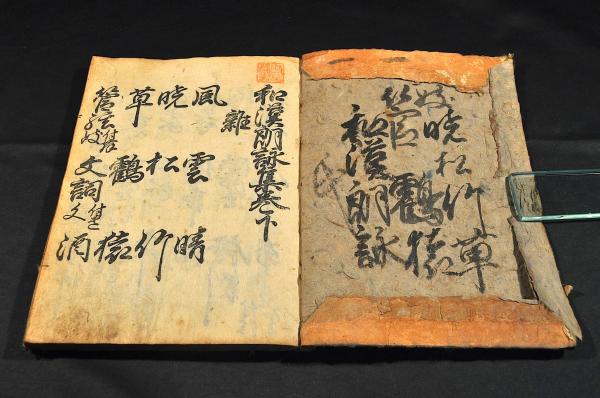 和漢朗詠集巻下
雑
風 雲 晴
暁 松 竹
草 鶴 猿
管絃 文詞 酒
妓 暁 松 竹 草
管 鶴 猿
和漢朗詠